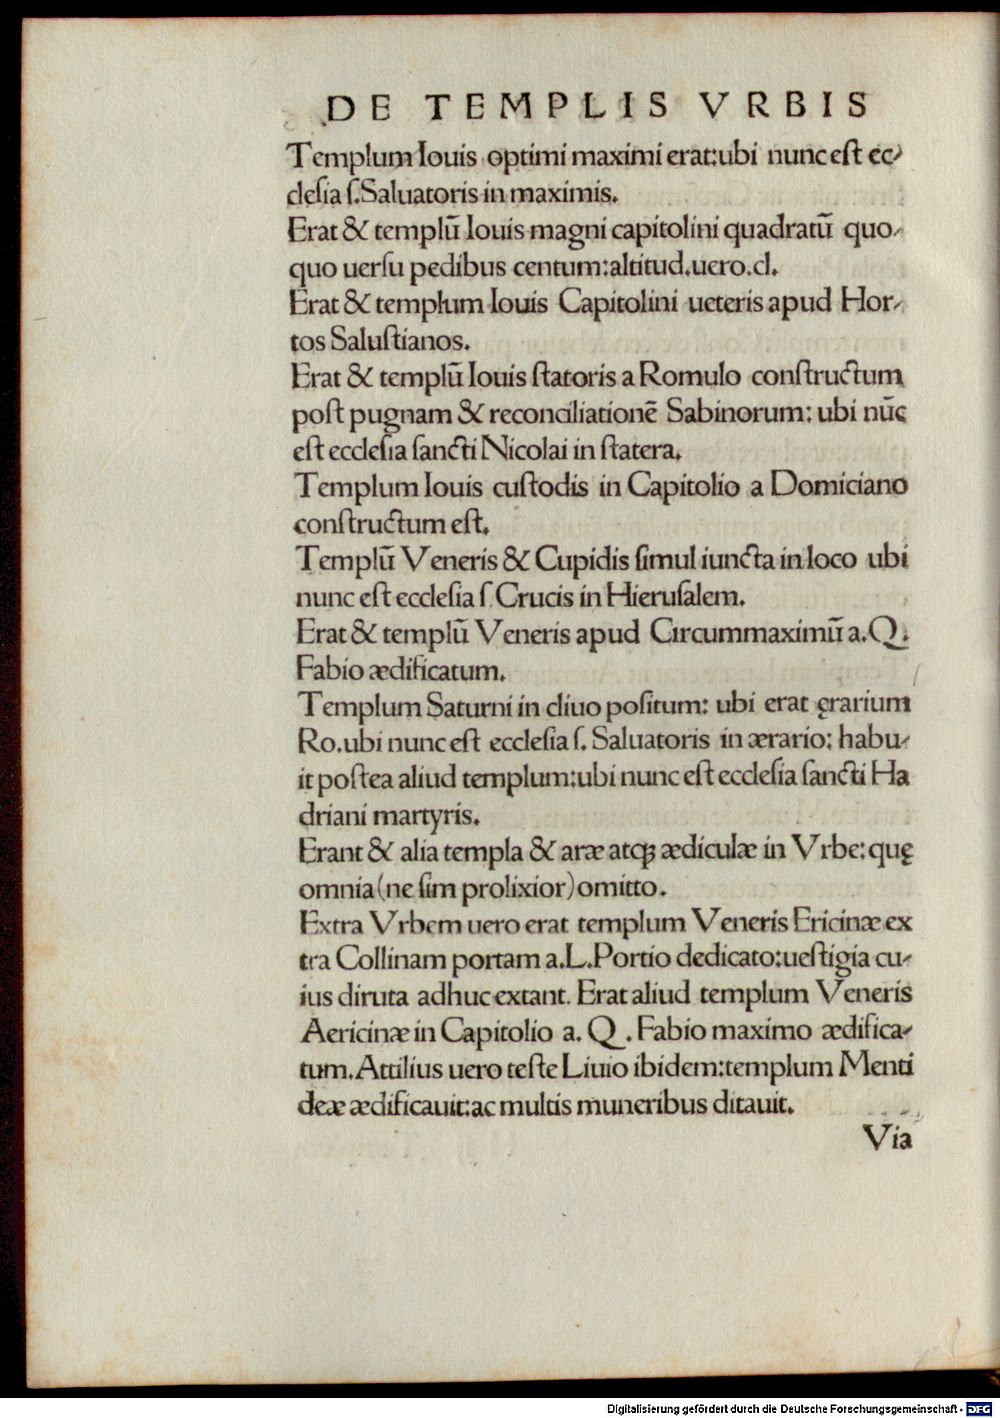 DE TEMPLIS VRBIS
Templum Iouis optimi maximi erat:ubi nunc eſt ec-
cleſia ſ.Saluatoris in maximis.
Erat & templū Iouis magni capitolini quadratū quo-
quo uerſu pedibus centum:altitud.uero.cl.
Erat & templum Iouis Capitolini ueteris apud Hor-
tos Saluſtianos.
Erat & templū Iouis ſtatoris a Romulo conſtructum
poſt pugnam & reconciliationē Sabinorum: ubi nūc
eſt eccleſia ſancti Nicolai in ſtatera.
Templum Iouis cuſtodis in Capitolio a Domiciano
conſtructum eſt.
Templū Veneris & Cupidis ſimul iuncta in loco ubi
nunc eſt eccleſia ſ.Crucis in Hieruſalem.
Erat & templū Veneris apud Circummaximū a.Q.
Fabio ædificatum.
Templum Saturni in cliuo poſitum: ubi erat ęrarium
Ro.ubi nunc eſt eccleſia ſ. Saluatoris in ærario: habu-
it poſtea aliud templum:ubi nunc eſt eccleſia ſancti Ha
driani martyris.
Erant & alia templa & aræ atqꝫ ædiculæ in Vrbe: quę
omnia (ne ſim prolixior) omitto.
Extra Vrbem uero erat templum Veneris Ericinæ ex
tra Collinam portam a.L.Portio dedicato:ueſtigia cu-
ius diruta adhuc extant. Erat aliud templum Veneris
Aericinæ in Capitolio a. Q. Fabio maximo ædifica-
tum.Attilius uero teſte Liuio ibidem:templum Menti
deæ ædificauit:ac multis muneribus ditauit.
Via
Digitalisierung gefördert durch die Deutsche Forschungsgemeinschaft - DFG